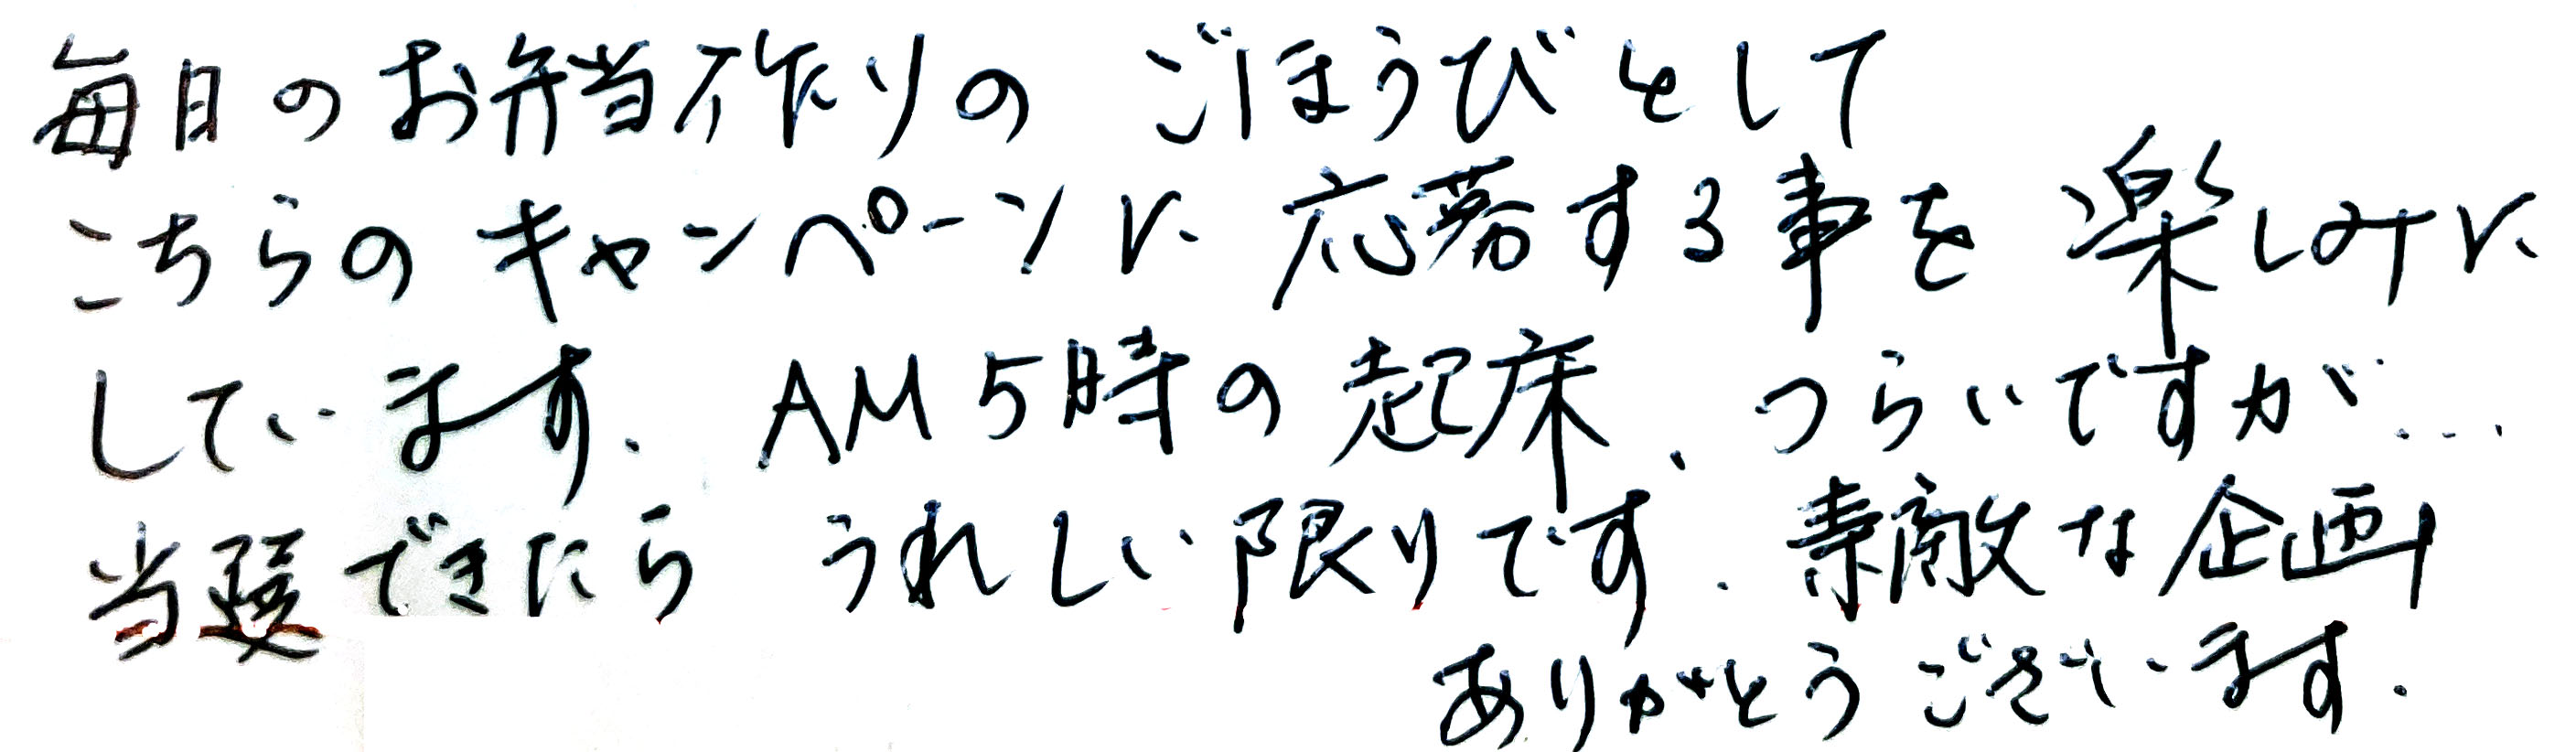 毎日のお弁当作りの ごほうびとして
こちらのキャンペーンに 応募する事を 楽しみに
しています. AM5時の起床、つらいですが…
当選できたら うれしい限りです. 素敵な企画
ありがとうございます.